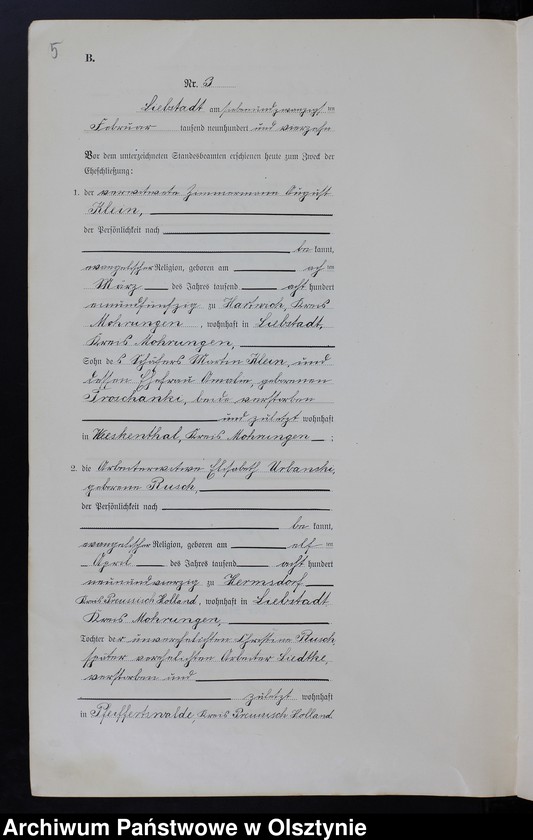 5
B.
Nr. 3
Liebstadt am siebenundzwanzigsten
Februar tausend neunhundert und vierzehn
Vor dem unterzeichneten Standesbeamten erschienen heute zum Zweck der
Eheschließung:
1. der verwitwete Zimmermann August
Klein,
der Persönlichkeit nach
be kannt,
evangelischer Religion, geboren am
März des Jahres tausend acht hundert
einundfünfzig zu Hartwich, Kreis
Mohrungen, wohnhaft in Liebstadt,
Kreis Mohrungen,
Sohn des Schäfers Martin Klein, und
dessen Ehefrau Amalie, geborenen
beide verstorben
und zuletzt wohnhaft
in Wieskenthal, Kreis Mohrungen ;
2. die Arbeiterwitwe Elisabeth Urbanski,
geborene Rusch,
der Persönlichkeit nach
be kannt,
evangelischer Religion, geboren am elf ten
April des Jahres tausend acht hundert
neunundvierzig zu Hermsdorf
Kreis Preussisch Holland, wohnhaft in Liebstadt
Kreis Mohrungen,
Tochter der unverehelichten Christine Rusch,
später verehelichten Arbeiter Liedtke,
verstorben und
zuletzt wohnhaft
in Pfeiffertswalde, Kreis Preussisch Holland
Archiwum Państwowe w Olsztynie